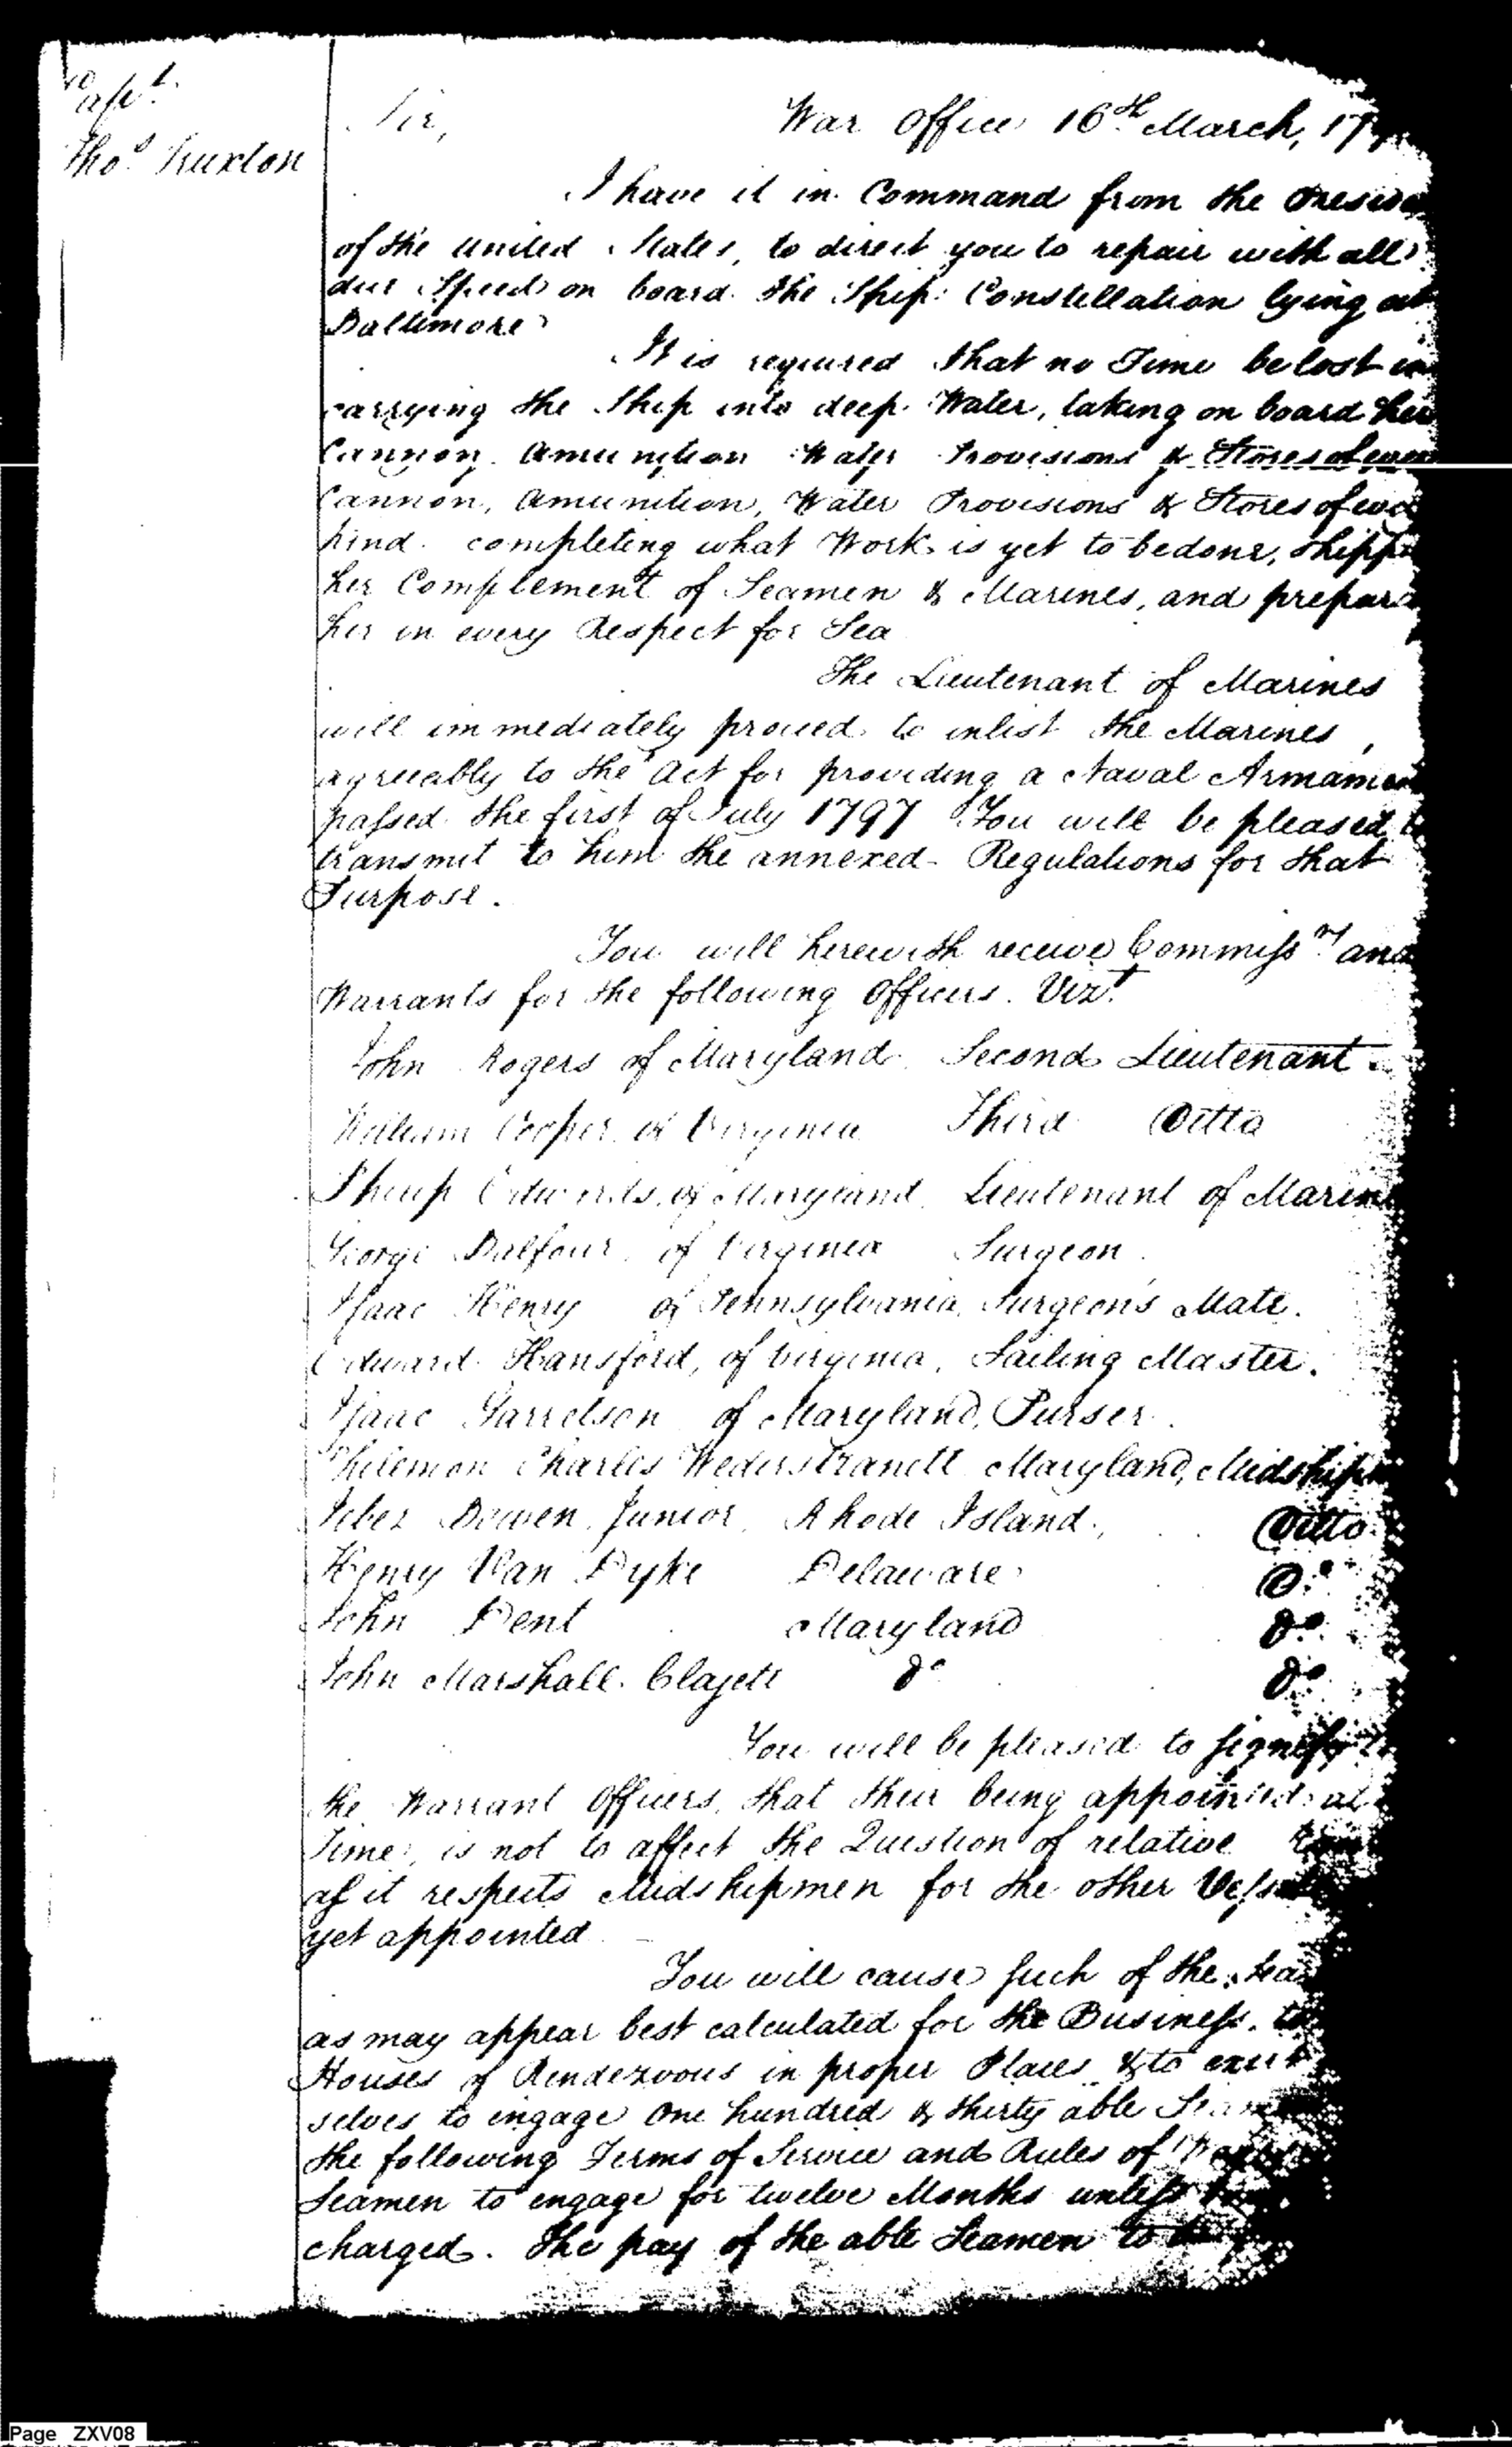 Capt.
Thos. Truxton
Sir,
War Office 16th March, 17
I have it in Command from the Preside
of the united States, to direct you to repair with all
due Speed on board the Ship Constellation lying at
Baltimore
It is required that no Time be lost in
carrying the Ship into deep Water, taking on board her
Cannon, Amunition Water Provisions & Stores of
Cannon, Amunition, Water Provisions & Stores of
kind completing what Work is yet to be done, shipp
her Complement of Seamen & Marines, and prepar
her in every Respect for Sea
The Lieutenant of Marines
will immediately proceed to inlist the Marines,
agreeably to the Act for providing a Naval Armamen
passed the first of July 1797 You will be pleased to
transmit to him the annexed Regulations for that
Purpose.
You will herewith receive Commissns. and
Warrants for the following Officers. Vizt.
John Rogers of Maryland Second Lieutenant.
William Cooper of Virginia Third Ditto
Philip Edwards, of Maryland Lieutenant of Marin
George Balfour of Virginia Surgeon.
Isaac Henry of Pennsylvania, Surgeon's Mate.
Edward Hansford, of Virginia, Sailing Master.
Isaac Garretson of Maryland, Purser.
Philemon Charles Wederstrandt Maryland, Midship
Jebez Bowen, Junior, Rhode Island, Ditto
Henry Van Dyke Delaware Do.
John Dent Maryland do.
John Marshall Clagett do do
You will be pleased to signify
the Warrant Officers, that their being appointed at
Time, is not to affect the Question of relative
as it respects Midshipmen for the other
yet appointed
You will cause such of the
as may appear best calculated for the Business, to
Houses of Rendezvous in proper Places & to exert
selves to engage One hundred & thirty able
the following Terms of Service and Rules of
Seamen to engage for twelve Months unless
charged. The pay of the able Seamen to
Page ZXV08